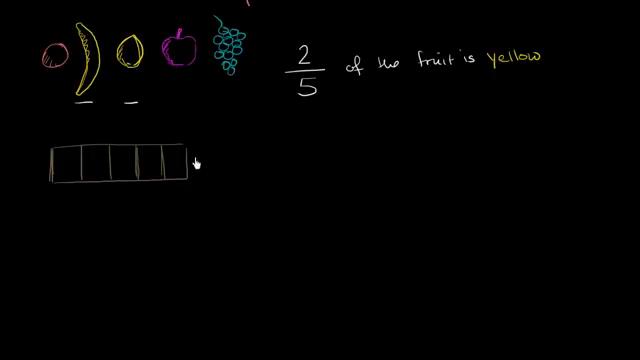 2/5 of the fruit is yellow